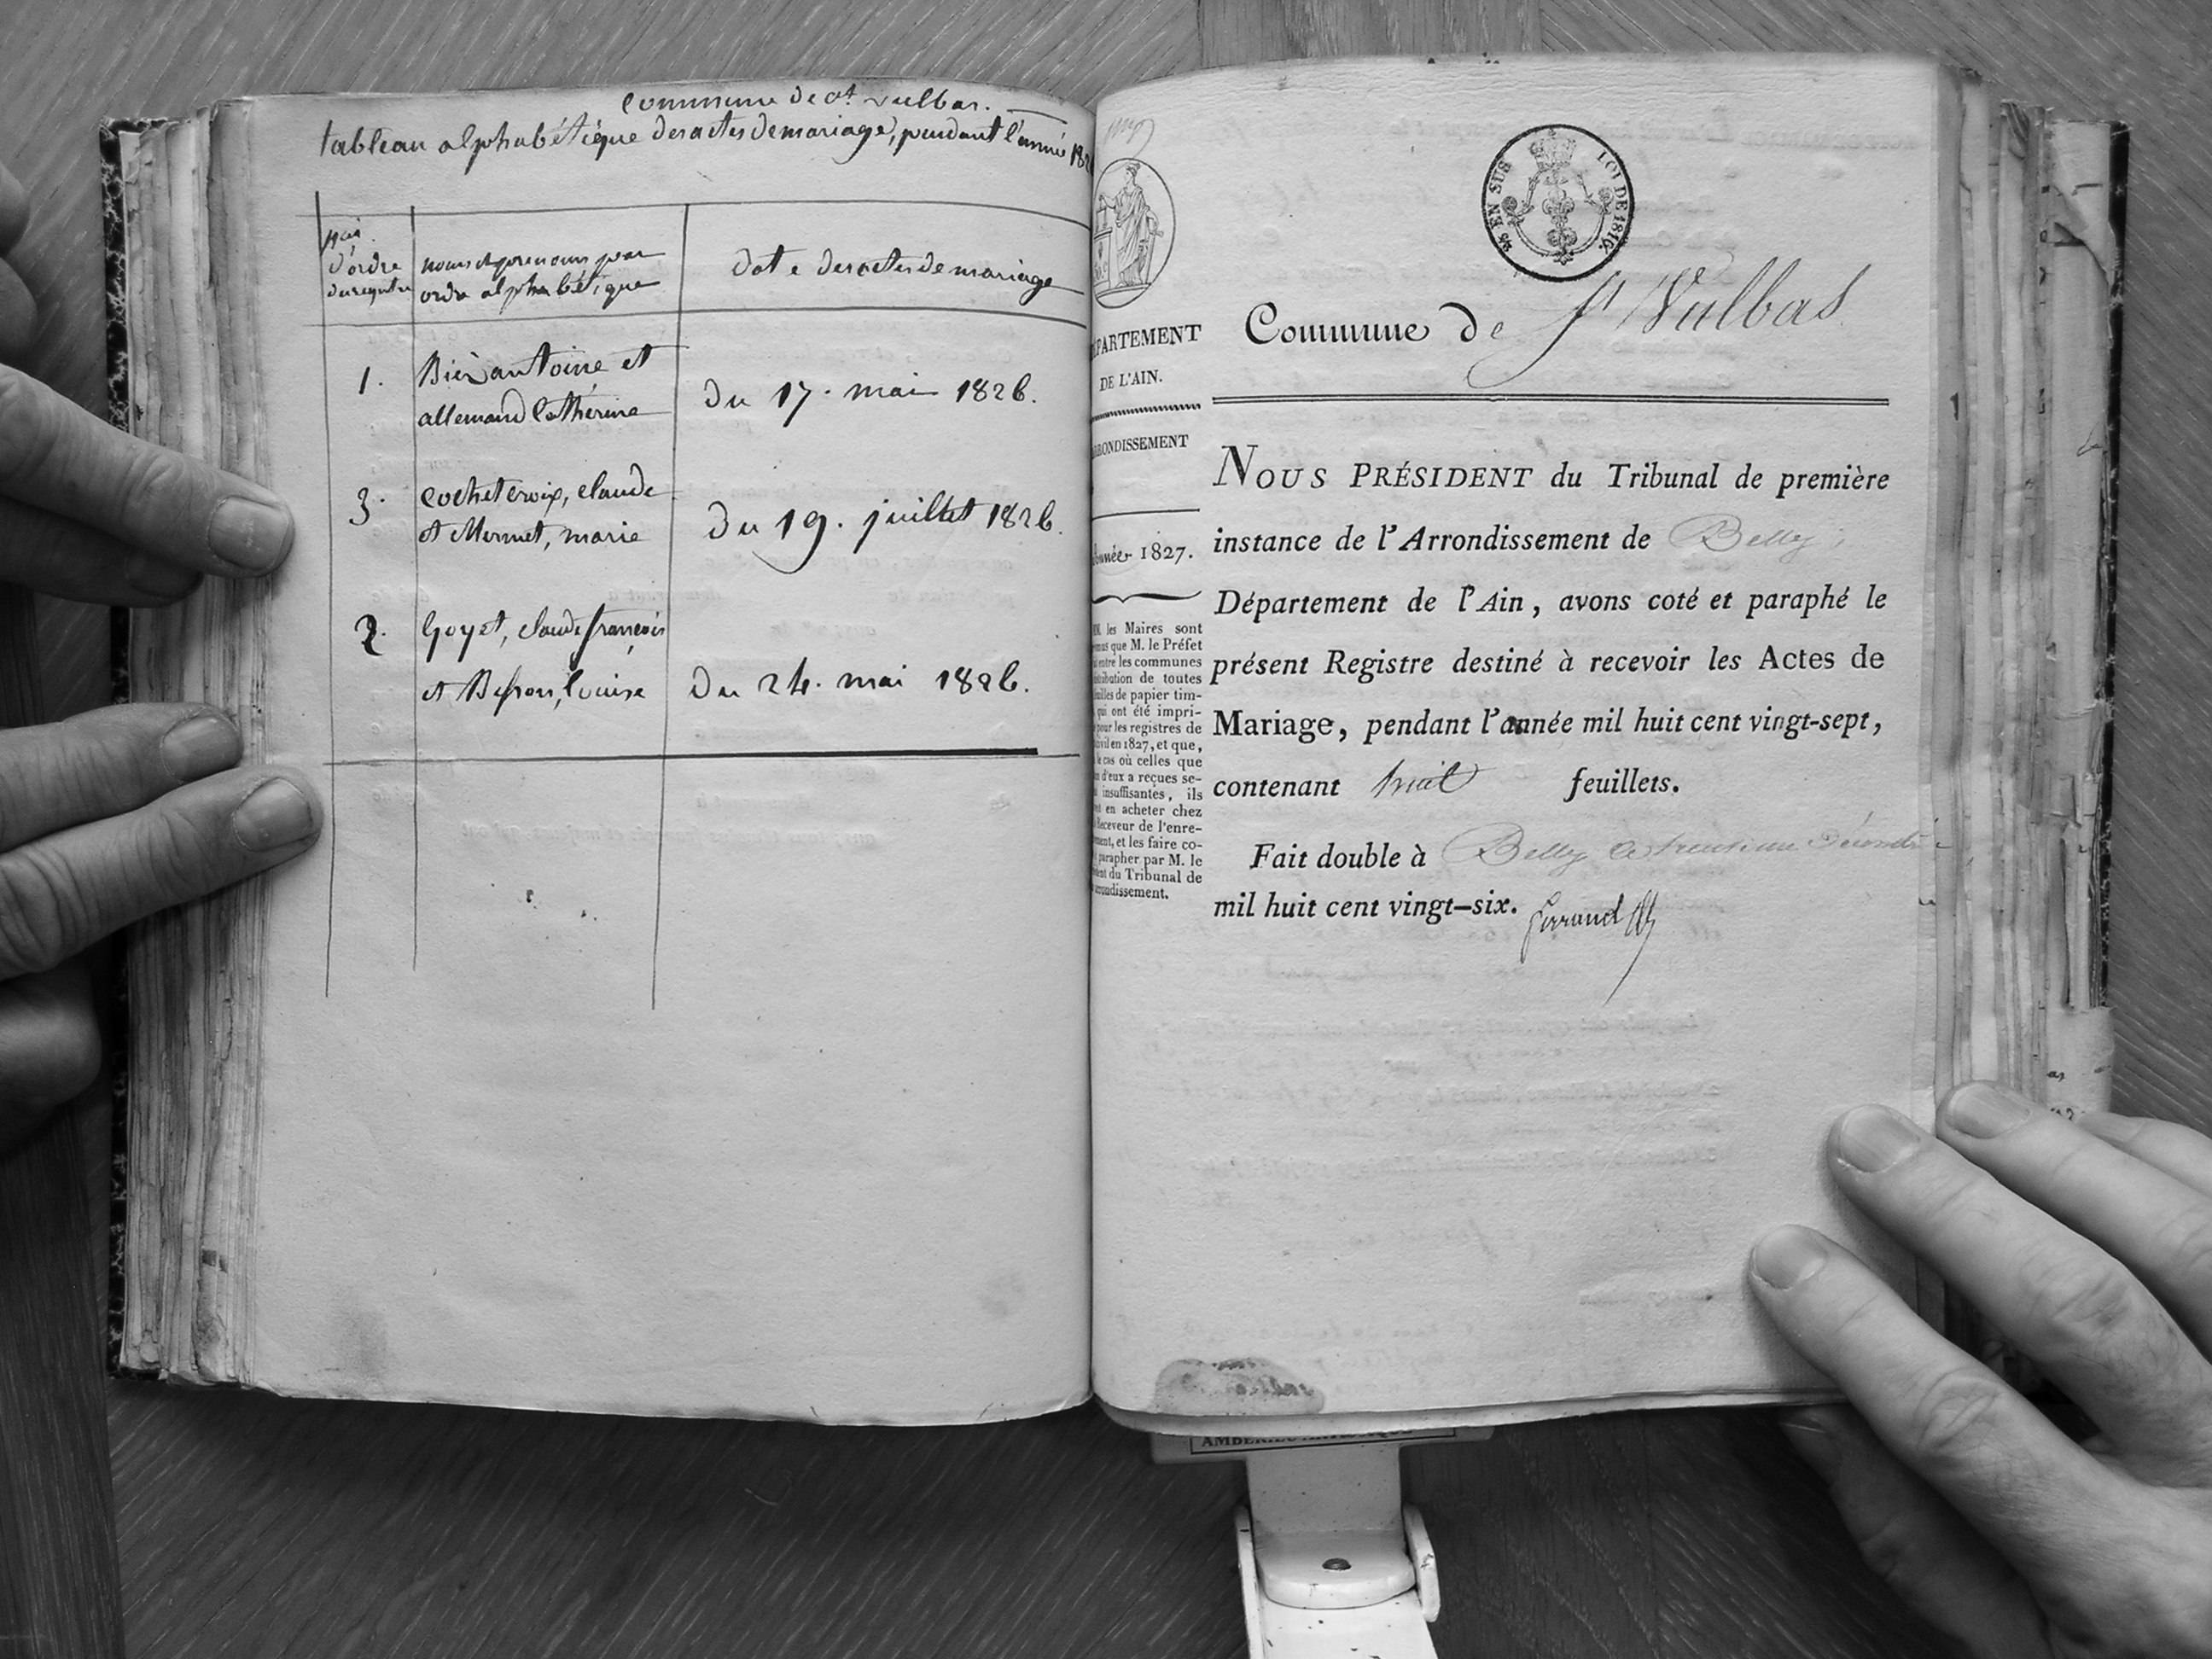 commune de st vulbas.
tableau alphabétique des actes de mariage, pendant l'année 182
d'ordre
du registre
noms et prenoms par
ordre alphabétique
date des actes de mariage
1.
Bié antoine et
allemand Catherine
du 17. mai 1826.
3.
cochet croix, claude
et Mermet, marie
du 19. juillet 1826.
2.
Goyet, claude françois
et Louise
du 24. mai 1826.
EN SUS
LOI DE 1816.
PARTEMENT
DE L'AIN.
RONDISSEMENT
Année 1827.
les Maires sont
que M. le Préfet
entre les communes
tribution de toutes
feuilles de papier tim-
qui ont été impri-
pour les registres de
civil en 1827, et que,
le cas où celles que
d'eux a reçues se-
insuffisantes, ils
en acheter chez
Receveur de l'enre-
ment, et les faire co-
parapher par M. le
dent du Tribunal de
arrondissement.
Commune de St Vulbas
1
NOUS PRÉSIDENT du Tribunal de première
instance de l'Arrondissement de Belley,
Département de l'Ain, avons coté et paraphé le
présent Registre destiné à recevoir les Actes de
Mariage, pendant l'année mil huit cent vingt-sept,
contenant huit feuillets.
Fait double à Belley le trentieme Décembre
mil huit cent vingt-six.